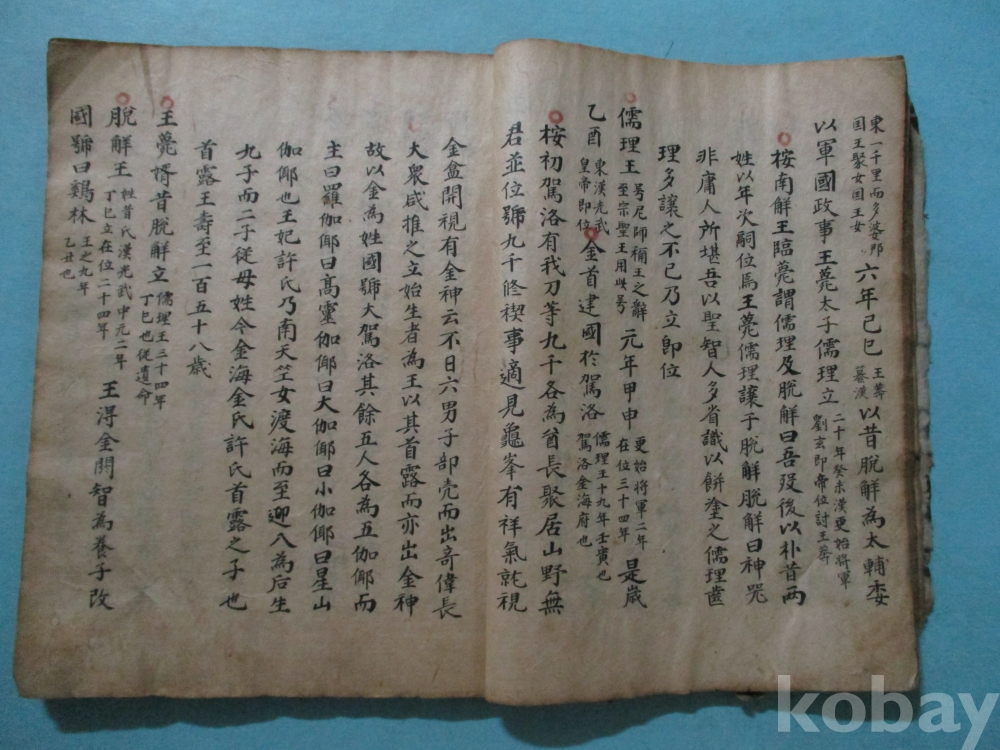 東一千里而多婆那
国王娶女国王女
六年己巳
王莽
簒漢
以昔脫解為太輔委
以軍國政事王薨太子儒理立
二十年癸未漢更始將軍
劉玄即帝位討王莽
按南解王臨薨謂儒理及脫解曰吾歿後以朴昔两
姓以年次嗣位焉王薨儒理讓于脫解脫解曰神器
非庸人所堪吾以聖智人多省識以餅塗之儒理齒
理多讓之不已乃立即位
儒理王
号尼師禰王之辭
至宗聖王用此号
元年甲申
更始將軍二年
在位三十四年
是歲
乙酉
東漢光武
皇帝即位
金首建國於駕洛
儒理王十九年壬寅也
駕洛金海府也
按初駕洛有我刀等九千各為酋長聚居山野無
君並位號九千修禊事適見龜峯有祥氣就視
金盒開視有金神云不日六男子部壳而出奇偉長
大衆咸推之立始生者為王以其首露而亦出金神
故以金為姓國號大駕洛其餘五人各為五伽倻而
主曰羅伽倻曰高靈伽倻曰大伽倻曰小伽倻曰星山
伽倻也王妃許氏乃南天竺女渡海而至迎入為后生
九子而二子從母姓今金海金氏許氏首露之子也
首露王壽至一百五十八歲
王薨婿昔脫解立
儒理王三十四年
丁巳也從遺命
脫解王
姓昔氏漢光武中元二年
丁巳立在位二十四年
王淂金閼智為養子改
國號曰鷄林
王之九年
乙丑也
kobay